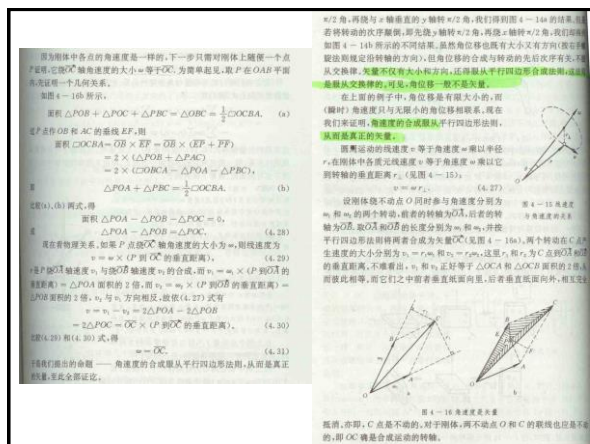 因为刚体中各点的角速度是一样的,下一步只需对刚体上随便一个点
P证明,它绕OC轴角速度的大小ω等于OC.为简单起见,取P在OAB平面
内.先证明一个几何关系.
如图4-16b所示,
面积 △POB + △POC + △PBC = △OBC = 1/2 □OCBA. (a)
过P点作OB和AC的垂线EF,则
面积 □OCBA = OB × EF = OB × (EP + PF)
= 2 × (△POB + △PAC)
= 2 × (□OBCA - △POA - △PBC),
即 △POA + △PBC = 1/2 □OCBA. (b)
比较(a)、(b)两式,得
面积 △POA - △POB - △POC = 0. (4.28)
现在看物理关系.如果P点绕OC轴角速度的大小为ω,则线速度为
v = ω × (P到OC的垂直距离), (4.29)
v是P绕OA轴速度v₁与绕OB轴速度v₂的合成,而v₁ = ω₁ × (P到OA的
垂直距离) = △POA面积的2倍,而v₂ = ω₂ × (P到OB的垂直距离) =
△POB面积的2倍,v₂与v₁方向相反,故依(4.27)式有
v = v₁ - v₂ = 2△POA - 2△POB
= 2△POC = OC × (P到OC的垂直距离). (4.30)
比较(4.29)和(4.30)式,得
ω = OC. (4.31)
于是我们提出的命题 —— 角速度的合成服从平行四边形法则,从而是真正
的矢量,至此全部证讫.
π/2角,再绕与x轴垂直的y轴转π/2角,我们得到图4-14a的结果.但是
若将转动的次序颠倒,即先绕y轴转π/2角,再绕x轴转π/2角,我们却得到
如图4-14b所示的不同结果.虽然角位移也既有大小又有方向(按右手螺
旋法则规定沿转轴的方向),但角位移的合成与转动的先后次序有关,不服
从交换律.矢量不仅有大小和方向,还得服从平行四边形合成法则,这法则
是服从交换律的.可见,角位移一般不是矢量.
在上面的例子中,角位移是有限大小的,而
(瞬时)角速度只与无限小的角位移相联系.现在
我们来证明,角速度的合成服从平行四边形法则,
从而是真正的矢量.
圆周运动的线速度v等于角速度ω乘以半径
r,在刚体中各质元线速度v等于角速度ω乘以它
到转轴的垂直距离r⊥(见图4-15):
v = ω r⊥. (4.27)
图4-15 线速度
与角速度的关系
设刚体绕不动点O同时参与角速度分别为
ω₁和ω₂的两个转动,前者的转轴为OA,后者的转
轴为OB.取OA和OB的长度分别为ω₁和ω₂,并按
平行四边形法则将两者合成为矢量OC(见图4-16a),两个转动在C点产
生速度的大小分别为v₁ = r₁ω₁和v₂ = r₂ω₂,这里r₁和r₂为C点到OA和OB
的垂直距离.不难看出,v₁和v₂正好等于△OCA和△OCB面积的2倍,从
而彼此相等,而它们之中前者垂直纸面向里,后者垂直纸面向外,相互完全
图4-16 角速度是矢量
抵消.亦即,C点是不动的.对于刚体,两不动点O和C的联线也应是不动
的,即OC确是合成运动的转轴.